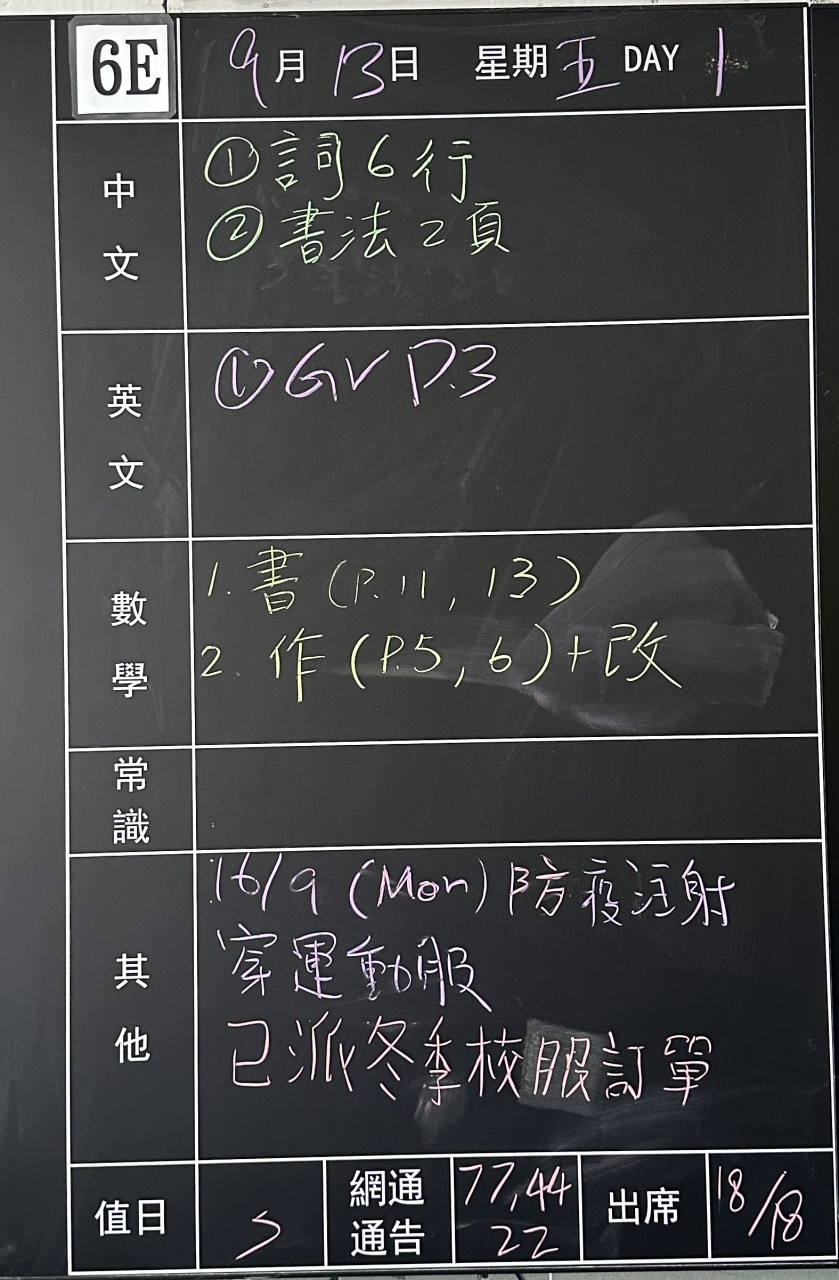 6E 9月13日 星期五 DAY 1
中文
①詞6行
②書法2頁
英文
①GV P.3
數學
1. 書(P.11, 13)
2. 作(P.5, 6)+改
常識
其他
16/9 (Mon) 防疫注射
穿運動服
已派冬季校服訂單
值日
網通通告 77,44
22
出席 18/18